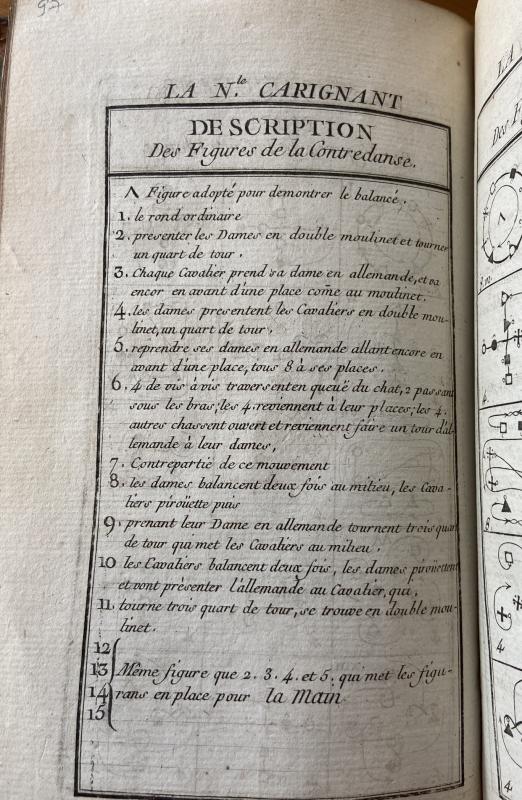 97
LA N.le CARIGNANT
DESCRIPTION
Des Figures de la Contredanse.
Λ Figure adopté pour demontrer le balancé.
1. le rond ordinaire
2. presenter les Dames en double moulinet et tourner
un quart de tour.
3. Chaque Cavalier prend sa dame en allemande, et va
encor en avant d'une place com̃e au moulinet.
4. les dames presentent les Cavaliers en double mou-
linet, un quart de tour,
5. reprendre ses dames en allemande allant encore en
avant d'une place, tous 8 à ses places.
6. 4 de vis à vis traversent en queuë du chat, 2 passant
sous les bras; les 4. reviennent à leur places; les 4.
autres chassent ouvert et reviennent faire un tour d'al-
lemande à leur dames,
7. Contrepartie de ce mouvement
8. les dames balancent deux fois au milieu, les Cava-
liers piroüette puis
9. prenant leur Dame en allemande tournent trois quart
de tour qui met les Cavaliers au milieu.
10 les Cavaliers balancent deux fois, les dames piroüettent
et vont présenter l'allemande au Cavalier, qui,
11. tourne trois quart de tour, se trouve en double mou-
linet.
12
13 Même figure que 2. 3. 4. et 5. qui met les figu-
14 rans en place pour la main.
15